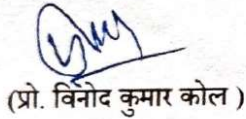 (प्रो. विनोद कुमार कोल )